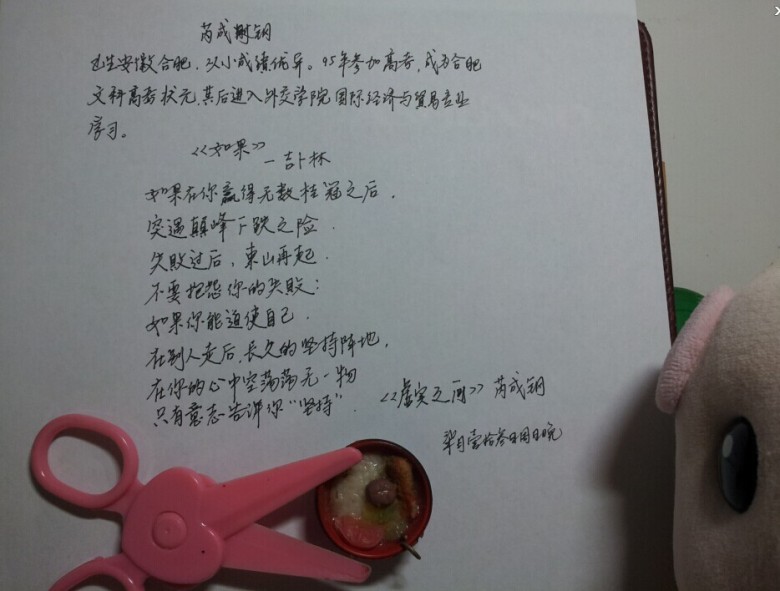 芮成钢
出生安徽合肥，从小成绩优异。95年参加高考，成为合肥
文科高考状元，其后进入外交学院国际经济与贸易专业
学习。
<<如果>>
—吉卜林
如果在你赢得无数桂冠之后，
突遇巅峰下跌之险．
失败过后，东山再起．
不要抱怨你的失败：
如果你能迫使自己．
在别人走后，長久的坚持阵地，
在你的心中空荡荡无一物
只有意志告诉你“坚持”．
<<虚实之间>> 芮成钢
月壹拾叁日周日晚